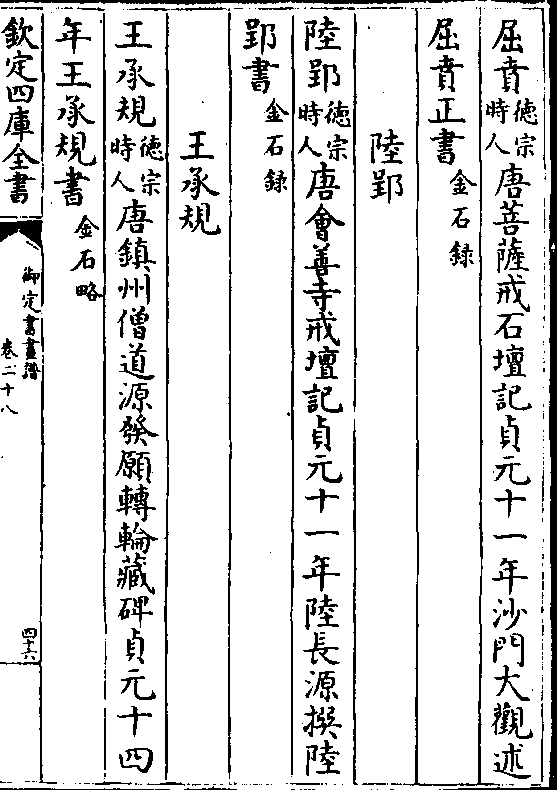 屈賁德宗時人唐菩薩戒石壇記貞元十一年沙門大觀述
屈賁正書金石録
陸郢
陸郢德宗時人唐會善寺戒壇記貞元十一年陸長源撰陸
郢書金石録
王承規
王承規德宗時人唐鎮州僧道源發願轉輪藏碑貞元十四
年王承規書金石略
欽定四庫全書
御定書畫譜
卷二十八
四十六